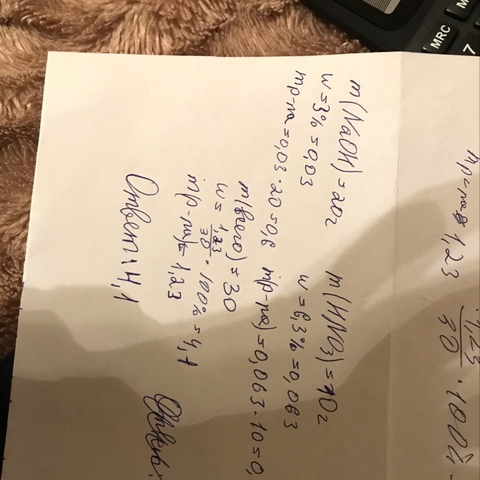 m(NaOH)=20г
w=3%=0,03
mр-ра=0,03·20=0,6
m(HNO3)=10г
w=6,3%=0,063
mр-ра)=0,063·10=0,
m(всего)=30
w=1,23/30·100%=4,1
mр-ра)=1,23
Ответ: 4,1
1,23
1,23/30·100%
MRC
7